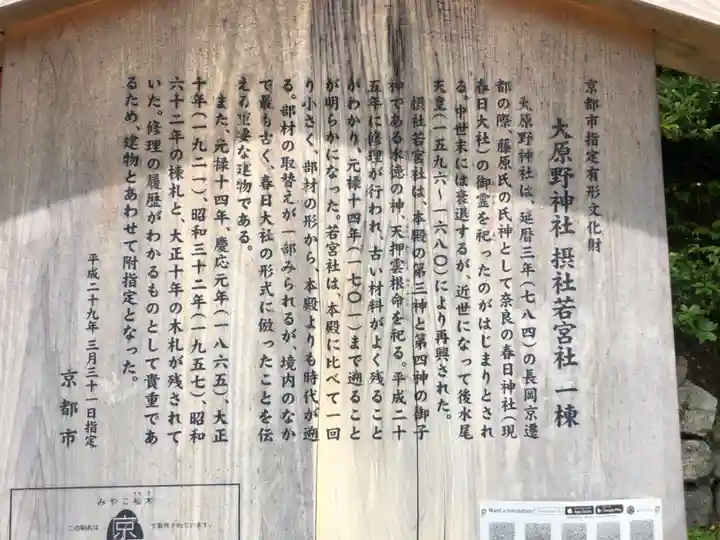 京都市指定有形文化財
大原野神社 摂社若宮社 一棟
大原野神社は、延暦三年(七八四)の長岡京遷
都の際、藤原氏の氏神として奈良の春日神社(現
春日大社)の御霊を祀ったのがはじまりとされ
る。中世末には衰退するが、近世になって後水尾
天皇(一五九六~一六八〇)により再興された。
摂社若宮社は、本殿の第三神と第四神の御子
神である水徳の神、天押雲根命を祀る。平成二十
五年に修理が行われ、古い材料がよく残ること
がわかり、元禄十四年(一七〇一)まで遡ること
が明らかになった。若宮社は、本殿に比べて一回
り小さく、部材の形から、本殿よりも時代が遡
る。部材の取替えが一部みられるが、境内のなか
で最も古く、春日大社の形式に倣ったことを伝
える重要な建物である。
また、元禄十四年、慶応元年(一八六五)、大正
十年(一九二一)、昭和三十二年(一九五七)、昭和
六十二年の棟札と、大正十年の木札が残されて
いた。修理の履歴がわかるものとして貴重であ
るため、建物とあわせて附指定となった。
平成二十九年三月三十一日指定
京都市
みやこ杣木
この駒札は
京
で製作されています。
Want a translation?
App Store
Google Play